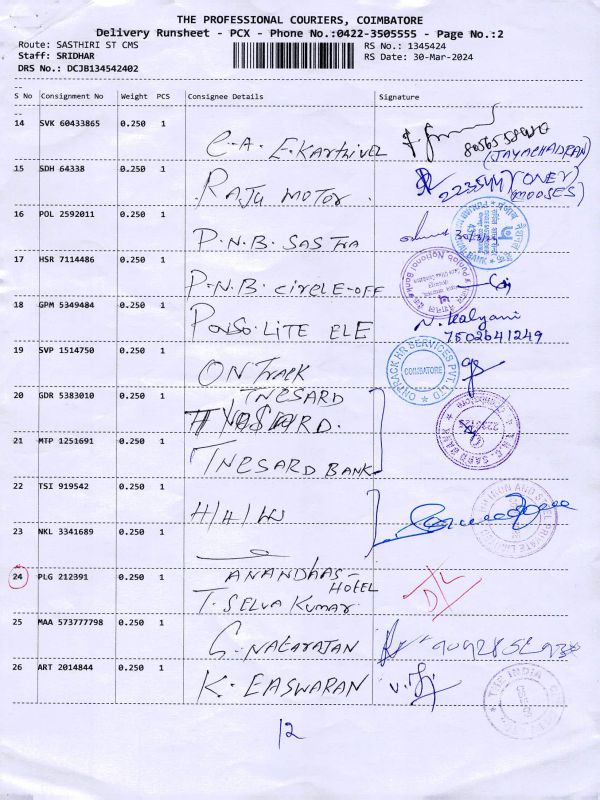 THE PROFESSIONAL COURIERS, COIMBATORE
Delivery Runsheet - PCX - Phone No.:0422-3505555 - Page No.:2
Route: SASTHIRI ST CMS
RS No.: 1345424
Staff: SRIDHAR
RS Date: 30-Mar-2024
DRS No.: DCJB134542402
S No Consignment No Weight PCS Consignee Details Signature
14 SVK 60433865 0.250 1
C.A. E.Karthivel
(JAYACHADRAN)
15 SDH 64338 0.250 1
RAJU MOTOR
16 POL 2592011 0.250 1
P.N.B. SASTRA
17 HSR 7114486 0.250 1
P.N.B. CIRCLE-OFF
Punjab National Bank
18 GPM 5349484 0.250 1
PONSO.LITE ELE
N. Kalyani
7502641249
19 SVP 1514750 0.250 1
ON TRACK
ONTRACK HR SERVICES PVT. LTD
COIMBATORE
20 GDR 5383010 0.250 1
TNESARD
21 MTP 1251691 0.250 1
TNESARD BANK
22 TSI 919542 0.250 1
23 NKL 3341689 0.250 1
24 PLG 212391 0.250 1
ANANDHAS-
HOTEL
T. SELVA KUMAR
DL
25 MAA 573777798 0.250 1
G. NATARAJAN
26 ART 2014844 0.250 1
K. EASWARAN
12